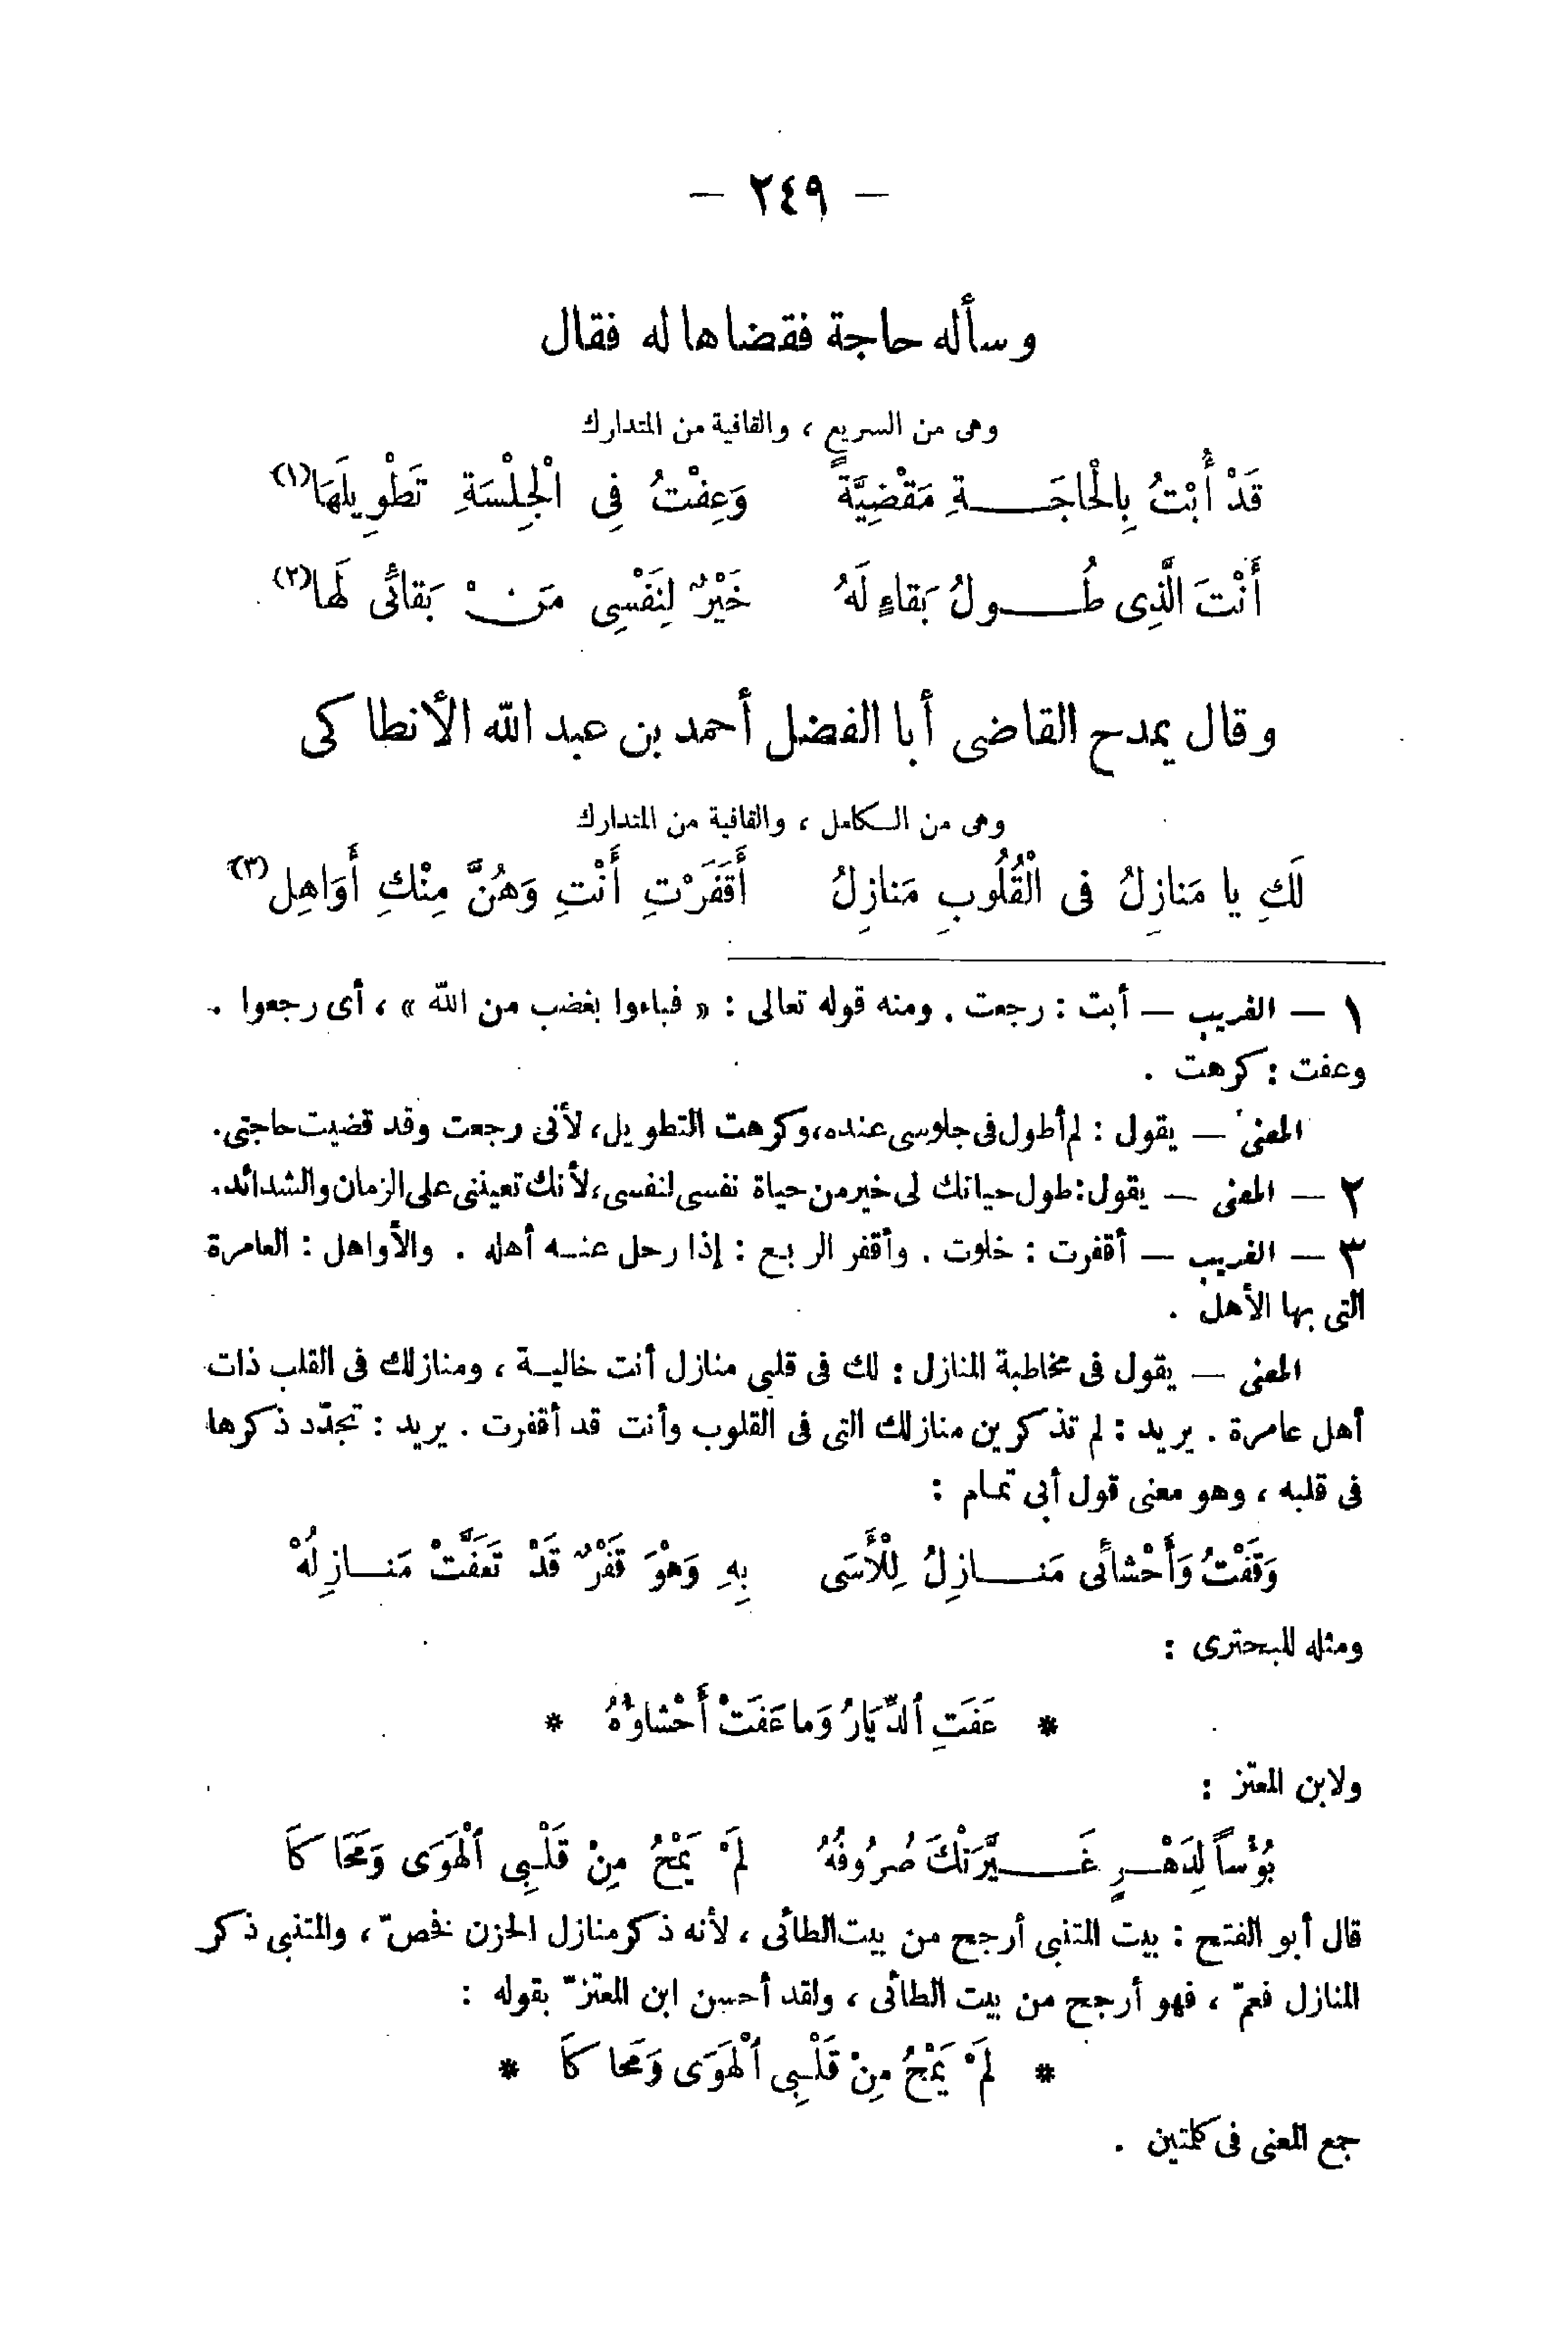 — ٢٤٩ —
وسأله حاجة فقضاها له فقال
وهى من السريع ، والقافية من المتدارك
قَدْ أُبْتُ بِالْحاجَـــةِ مَقْضِيَّةً وَعِفْتُ فِى الْجِلْسَةِ تَطْوِيلَهَا(١)
أَنْتَ الَّذِى طُـــولُ بَقاءٍ لَهُ خَيْرٌ لِنَفْسِى مَنْ بَقائَى لَها(٢)
وقال يمدح القاضى أبا الفضل أحمد بن عبد الله الأنطاكى
وهى من الكامل ، والقافية من المتدارك
لَكِ يا مَنازِلُ فى الْقُلُوبِ مَنازِلُ أَقَفَرْتِ أَنْتِ وَهُنَّ مِنْكِ أَوَاهِل(٣)
١ — الغريب — أبت : رجعت . ومنه قوله تعالى : « فباءوا بغضب من الله » ، أى رجعوا .
وعفت : كرهت .
المعنى — يقول : لم أطول فى جلوسى عنده، وكرهت التطويل، لأنى رجعت وقد قضيت حاجتى.
٢ — المعنى — يقول: طول حياتك لى خير من حياة نفسى لنفسى، لأنك تعيننى على الزمان والشدائد.
٣ — الغريب — أقفرت : خلوت . وأقفر الربع : إذا رحل عنه أهله . والأواهل : العامرة
التى بها الأهل .
المعنى — يقول فى مخاطبة المنازل : لك فى قلبى منازل أنت خالية ، ومنازلك فى القلب ذات
أهل عامرة . يريد : لم تذكرين منازلك التى فى القلوب وأنت قد أقفرت . يريد : تجدّد ذكرها
فى قلبه ، وهو معنى قول أبى تمام :
وَقَفْتُ وَأَحْشائَى مَنـــازِلُ لِلْأَسَى بِهِ وَهْوَ قَفْرٌ قَدْ تَعَفَّتْ مَنـــازِلُهْ
ومثله للبحترى :
* عَفَتِ ٱلدِّيَارُ وَما عَفَتْ أَحْشاؤهُ *
ولابن المعتز :
بُؤْساً لِدَهْـرٍ غَـــيَّرَتْكَ صُرُوفُهُ لَمْ يَمْحُ مِنْ قَلْبِى ٱلْهَوَى وَمَحَاكَا
قال أبو الفتح : بيت المتنبى أرجح من بيت الطائى ، لأنه ذكر منازل الحزن نخصّ ، والمتنبى ذكر
المنازل فعمّ ، فهو أرجح من بيت الطائى ، ولقد أحسن ابن المعتزّ بقوله :
* لَمْ يَمْحُ مِنْ قَلْبِى ٱلْهَوَى وَمَحاكَا *
جمع المعنى فى كلمتين .